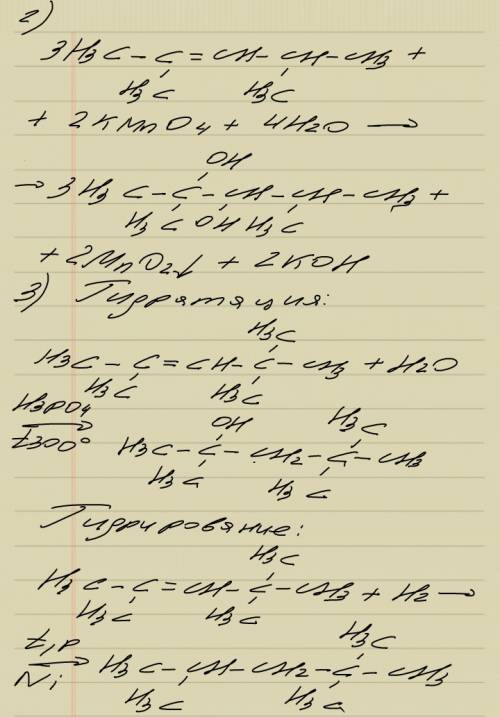 2)
3H3C – C = CH – CH – CH3 +
H3C H3C
+ 2KMnO4 + 4H2O →
OH
→ 3H3C – C – CH – CH – CH3 +
H3C OH H3C
+ 2MnO2↓ + 2KOH
3) Гидратация:
H3C
H3C – C = CH – C – CH3 + H2O
H3C H3C
H3PO4 OH H3C
→
t300° H3C – C – CH2 – C – CH3
H3C H3C
Гидрирование:
H3C
H3C – C = CH – C – CH3 + H2 →
H3C H3C
t,p H3C
→ H3C – CH – CH2 – C – CH3
Ni
H3C H3C